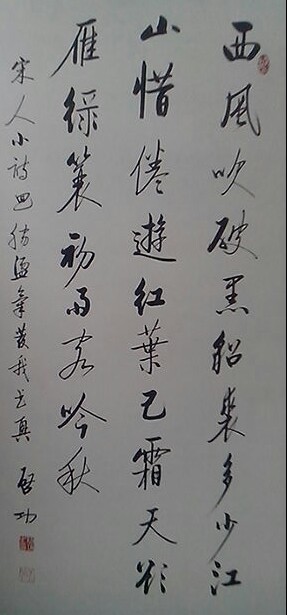 西風吹破黑貂裘多少江
山惜倦遊紅葉已霜天欲
雁綠蓑初雨客吟秋
宋人小詩 氣發我書真 啓功